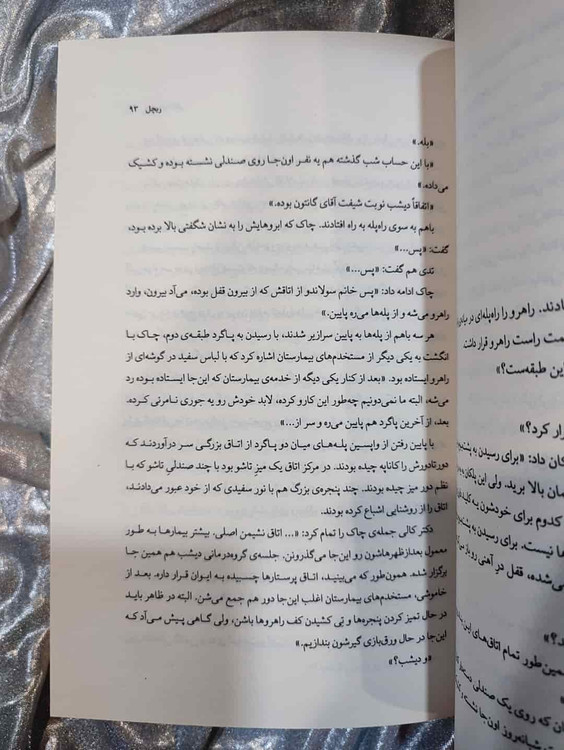 ریچل ۹۳
«بله.»
«با این حساب شب گذشته هم یه نفر اون‌جا روی صندلی نشسته بوده و کشیک
می‌داده.»
«اتفاقاً دیشب نوبت شیفت آقای گانتون بوده.»
باهم به سوی راه‌پله به راه افتادند. چاک که ابروهایش را به نشان شگفتی بالا برده بود،
گفت: «پس...»
تدی هم گفت: «پس...»
چاک ادامه داد: «پس خانم سولاندو از اتاقش که از بیرون قفل بوده، می‌آد بیرون، وارد
راهرو می‌شه و از پله‌ها می‌ره پایین.»
هر سه باهم از پله‌ها به پایین سرازیر شدند، با رسیدن به پاگرد طبقه‌ی دوم، چاک با
انگشت به یکی دیگر از مستخدم‌های بیمارستان اشاره کرد که با لباس سفید در گوشه‌ای از
راهرو ایستاده بود. «بعد از کنار یکی دیگه از خدمه‌ی بیمارستان که این‌جا ایستاده بوده رد
می‌شه، البته ما نمی‌دونیم چه‌طور این کارو کرده، لابد خودش رو یه جوری نامرئی کرده.
بعد، از آخرین پاگرد هم پایین می‌ره و سر از...»
با پایین رفتن از واپسین پله‌های میان دو پاگرد از اتاق بزرگی سر درآوردند که
دورتادورش را کاناپه چیده بودند. در مرکز اتاق یک میزِ تاشو با چند صندلیِ تاشو که با
نظم دور میز چیده بودند. چند پنجره‌ی بزرگ هم با نور سفیدی که از خود عبور می‌دادند،
اتاق را از روشنایی اشباع کرده بودند.
دکتر کالی جمله‌ی چاک را تمام کرد: «... اتاق نشیمن اصلی. بیشتر بیمارها به طور
معمول بعدازظهرهاشون رو این‌جا می‌گذرونن. جلسه‌ی گروه‌درمانی دیشب هم همین جا
برگزار شد. همون‌طور که می‌بینید، اتاق پرستارها چسبیده به ایوان قرار داره. بعد از
خاموشی، مستخدم‌های بیمارستان اغلب این‌جا دور هم جمع می‌شن. البته در ظاهر باید
در حال تمیز کردن پنجره‌ها و تِی کشیدن کف راهروها باشن، ولی گاهی پیش می‌آد که
این‌جا در حال ورق‌بازی گیرشون بندازیم.»
«و دیشب؟»
ادند. راهرو را راه‌پله‌ای در
مت راست راهرو قرار داشت
این طبقه‌ست؟»
رار کرد؟»
کان داد: «برای رسیدن به
مان بالا برید. ولی این پلکان
کدوم برای خودشون یه
ها نیست. برای رسیدن به
می‌شده، قفل درِ آهنی رو باز
د؟»
همین‌طور تمام اتاق‌های این
ان که روی یک صندلی
شبانه‌روز اون‌جا نشسته